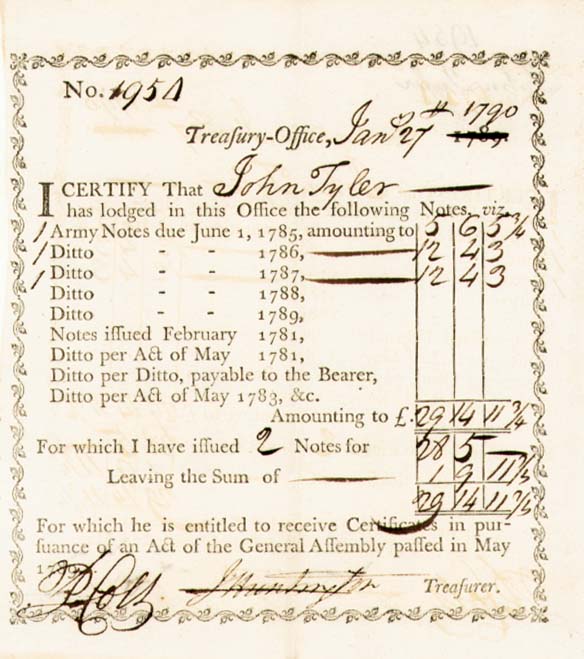 No. 1954
Treasury-Office, Jany 27th 1790
I CERTIFY That John Tyler
has lodged in this Office the following Notes, viz.
1 Army Notes due June 1, 1785, amounting to 5 6 5 3/4
1 Ditto - - 1786, 12 4 3
1 Ditto - - 1787, 12 4 3
Ditto - - 1788,
Ditto - - 1789,
Notes issued February 1781,
Ditto per Act of May 1781,
Ditto per Ditto, payable to the Bearer,
Ditto per Act of May 1783, &c.
Amounting to £. 29 14 11 3/4
For which I have issued 2 Notes for 28 5 —
Leaving the Sum of 1 9 11
29 14 11
For which he is entitled to receive Certificates in pur-
suance of an Act of the General Assembly passed in May
J Huntington Treasurer.